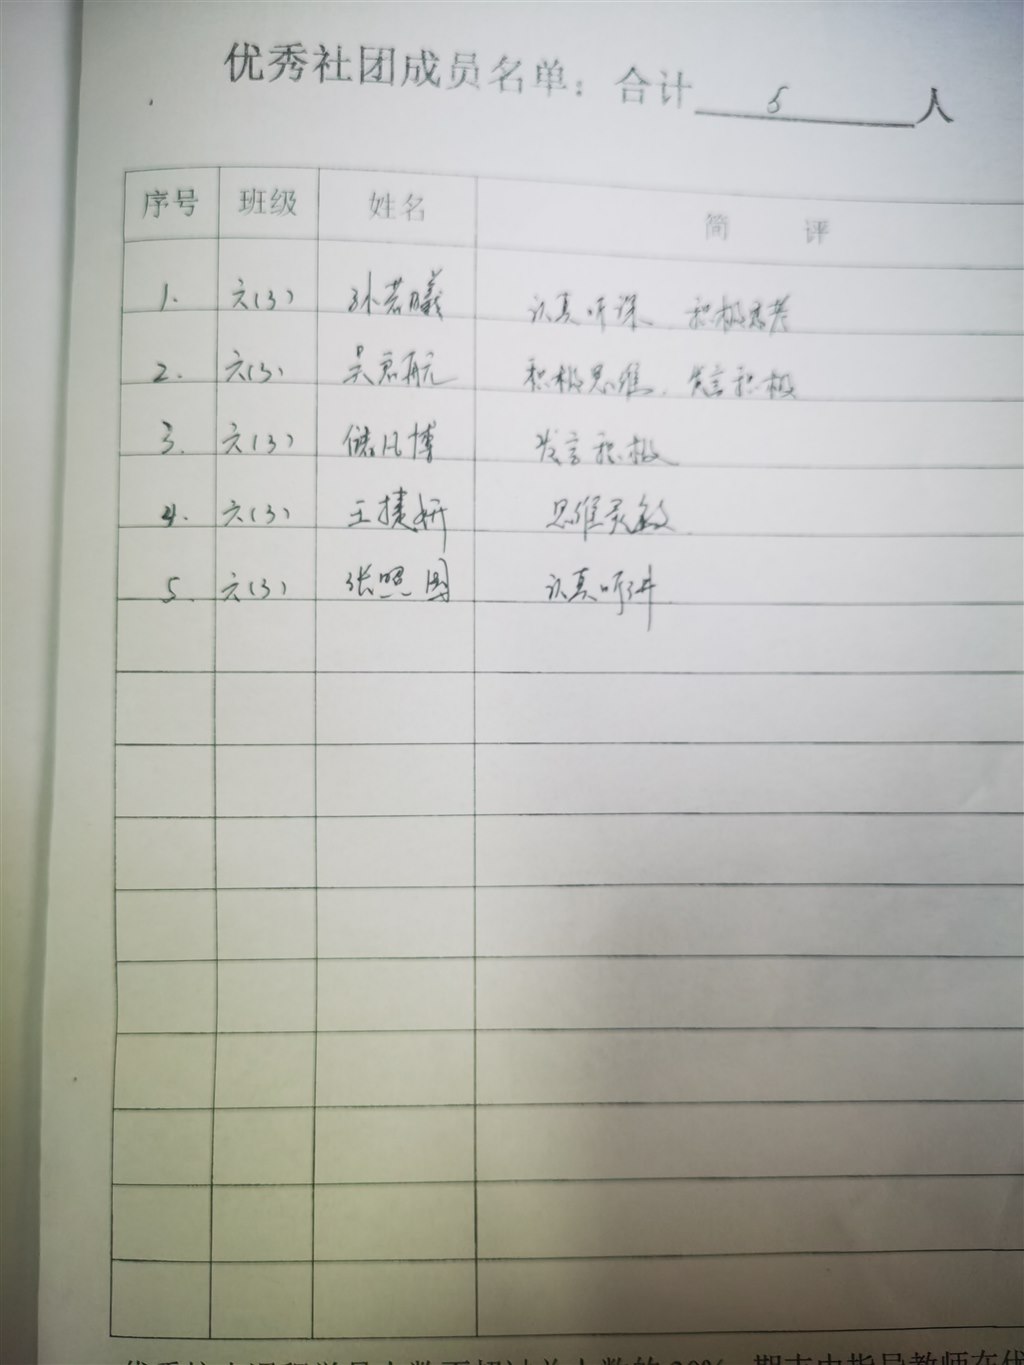 优秀社团成员名单：合计 5 人
序号 班级 姓名 简 评
1. 六(3) 孙若曦 认真听课 积极思考
2. 六(3) 吴君航 积极思维. 发言积极
3. 六(3) 储凡博 发言积极
4. 六(3) 王捷妍 思维灵敏
5. 六(3) 张照国 认真听讲